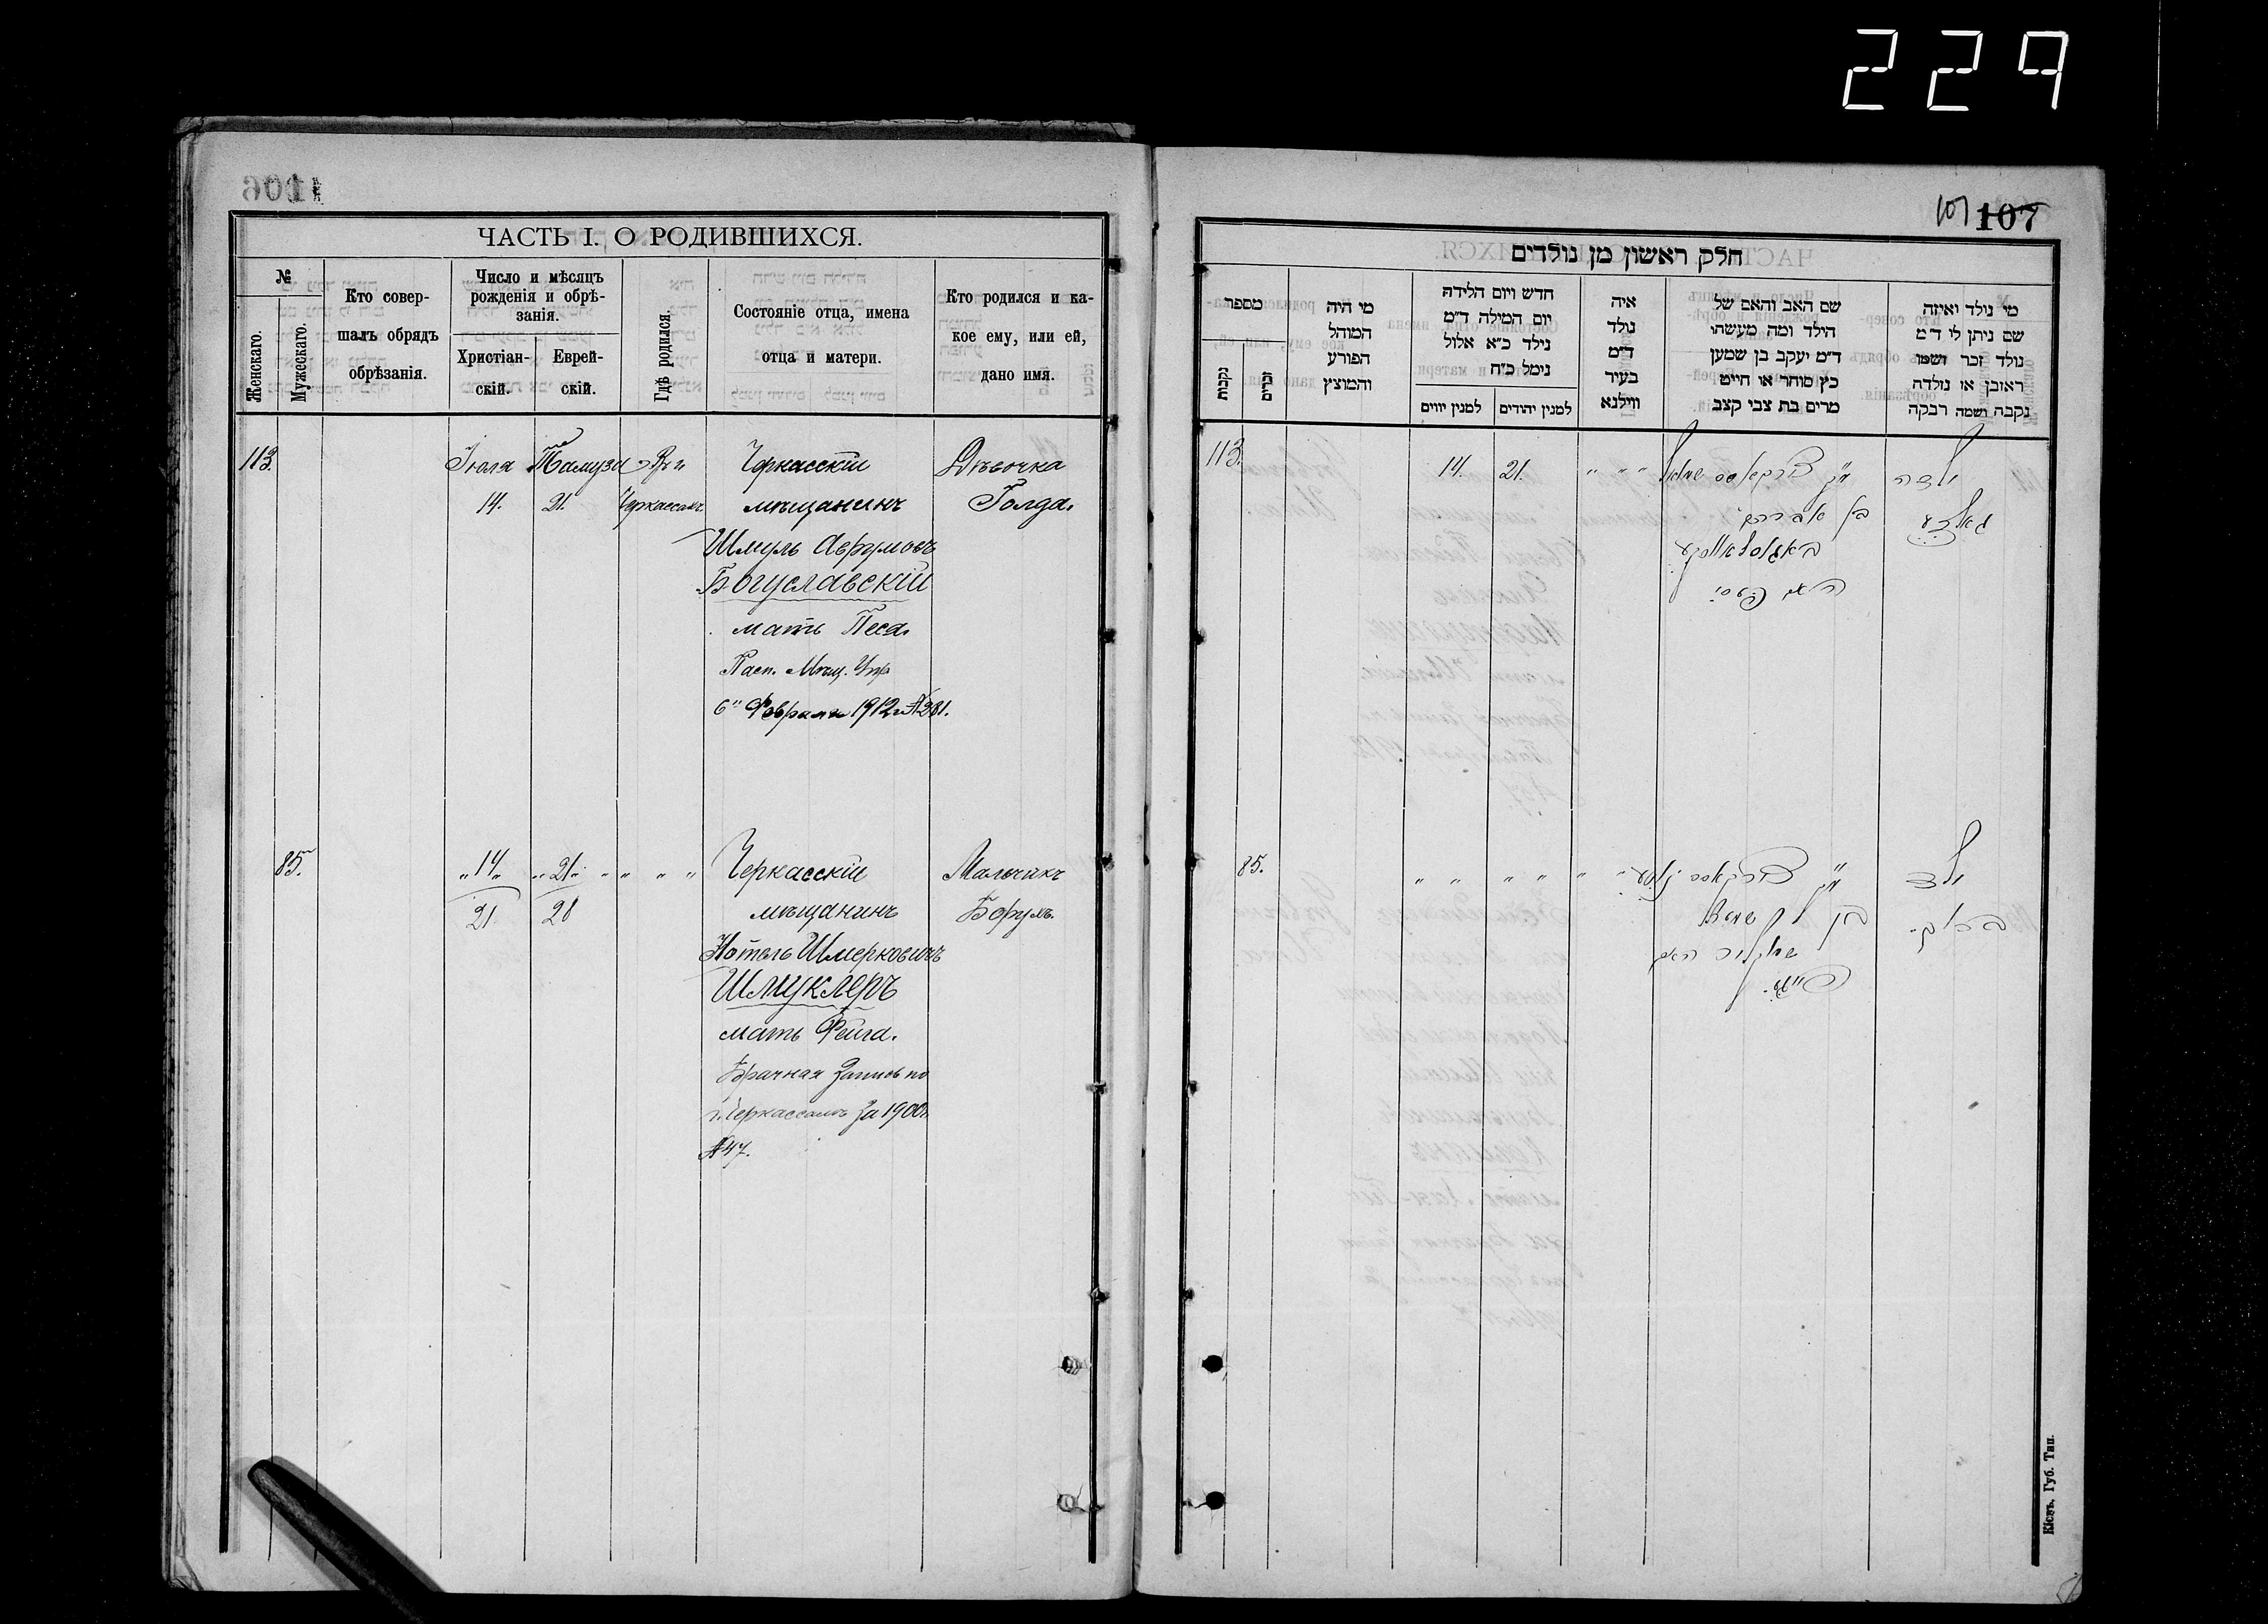 229
106
ЧАСТЬ I. О РОДИВШИХСЯ.
№
Женскаго.
Мужескаго.
Кто совер-
шалъ обрядъ
обрѣзанія.
Число и мѣсяцъ
рожденія и обрѣ-
занія.
Христіан-
скій.
Еврей-
скій.
Гдѣ родился.
Состояніе отца, имена
отца и матери.
Кто родился и ка-
кое ему, или ей,
дано имя.
113.
Іюля Тамуза Въ г. Черкасскій Дѣвочка
14. 21. Черкассахъ мѣщанинъ Голда.
Шмуль Аврумовъ
Богуславскій
мать Песя.
Пасп. Мѣщ. Упр.
6" Февраля 1912 г. № 381.
85. „14„ „21„ „ „ „ „ Черкасскій Мальчикъ
21. 28 мѣщанинъ Борухъ.
Нотель Шмерковичъ
Шмуклеръ
мать Фейга.
Брачная запись по
г. Черкассамъ за 1900 г.
№ 47.
107 107
חלק ראשון מן נולדים
מספר
נקבות
זכרים
מי היה
המוהל
הפורע
והמוצץ
חדש ויום הלידה
יום המילה ד״מ
נילד כ״א אלול
נימל כ״ח
למנין יווים
למנין יהודים
איה
נולד
ד״מ
בעיר
ווילנא
שם האב והאם של
הילד ומה מעשהו
ד״מ יעקב בן שמען
כץ סוחר או חייט
מרים בת צבי קצב
מי נולד ואיזה
שם ניתן לו ד״מ
נולד זכר ושמו
ראובן או נולדה
נקבה ושמה רבקה
113. 14. 21. „ „ „
ילדה
גאלדע
בן אברהם
באגוסלאווסקי
האם פעסי
85. „ „ „ „ „ „
ילד
ברוך.
שמוקליר האם
פייגע.
Кіевъ, Губ. Тип.